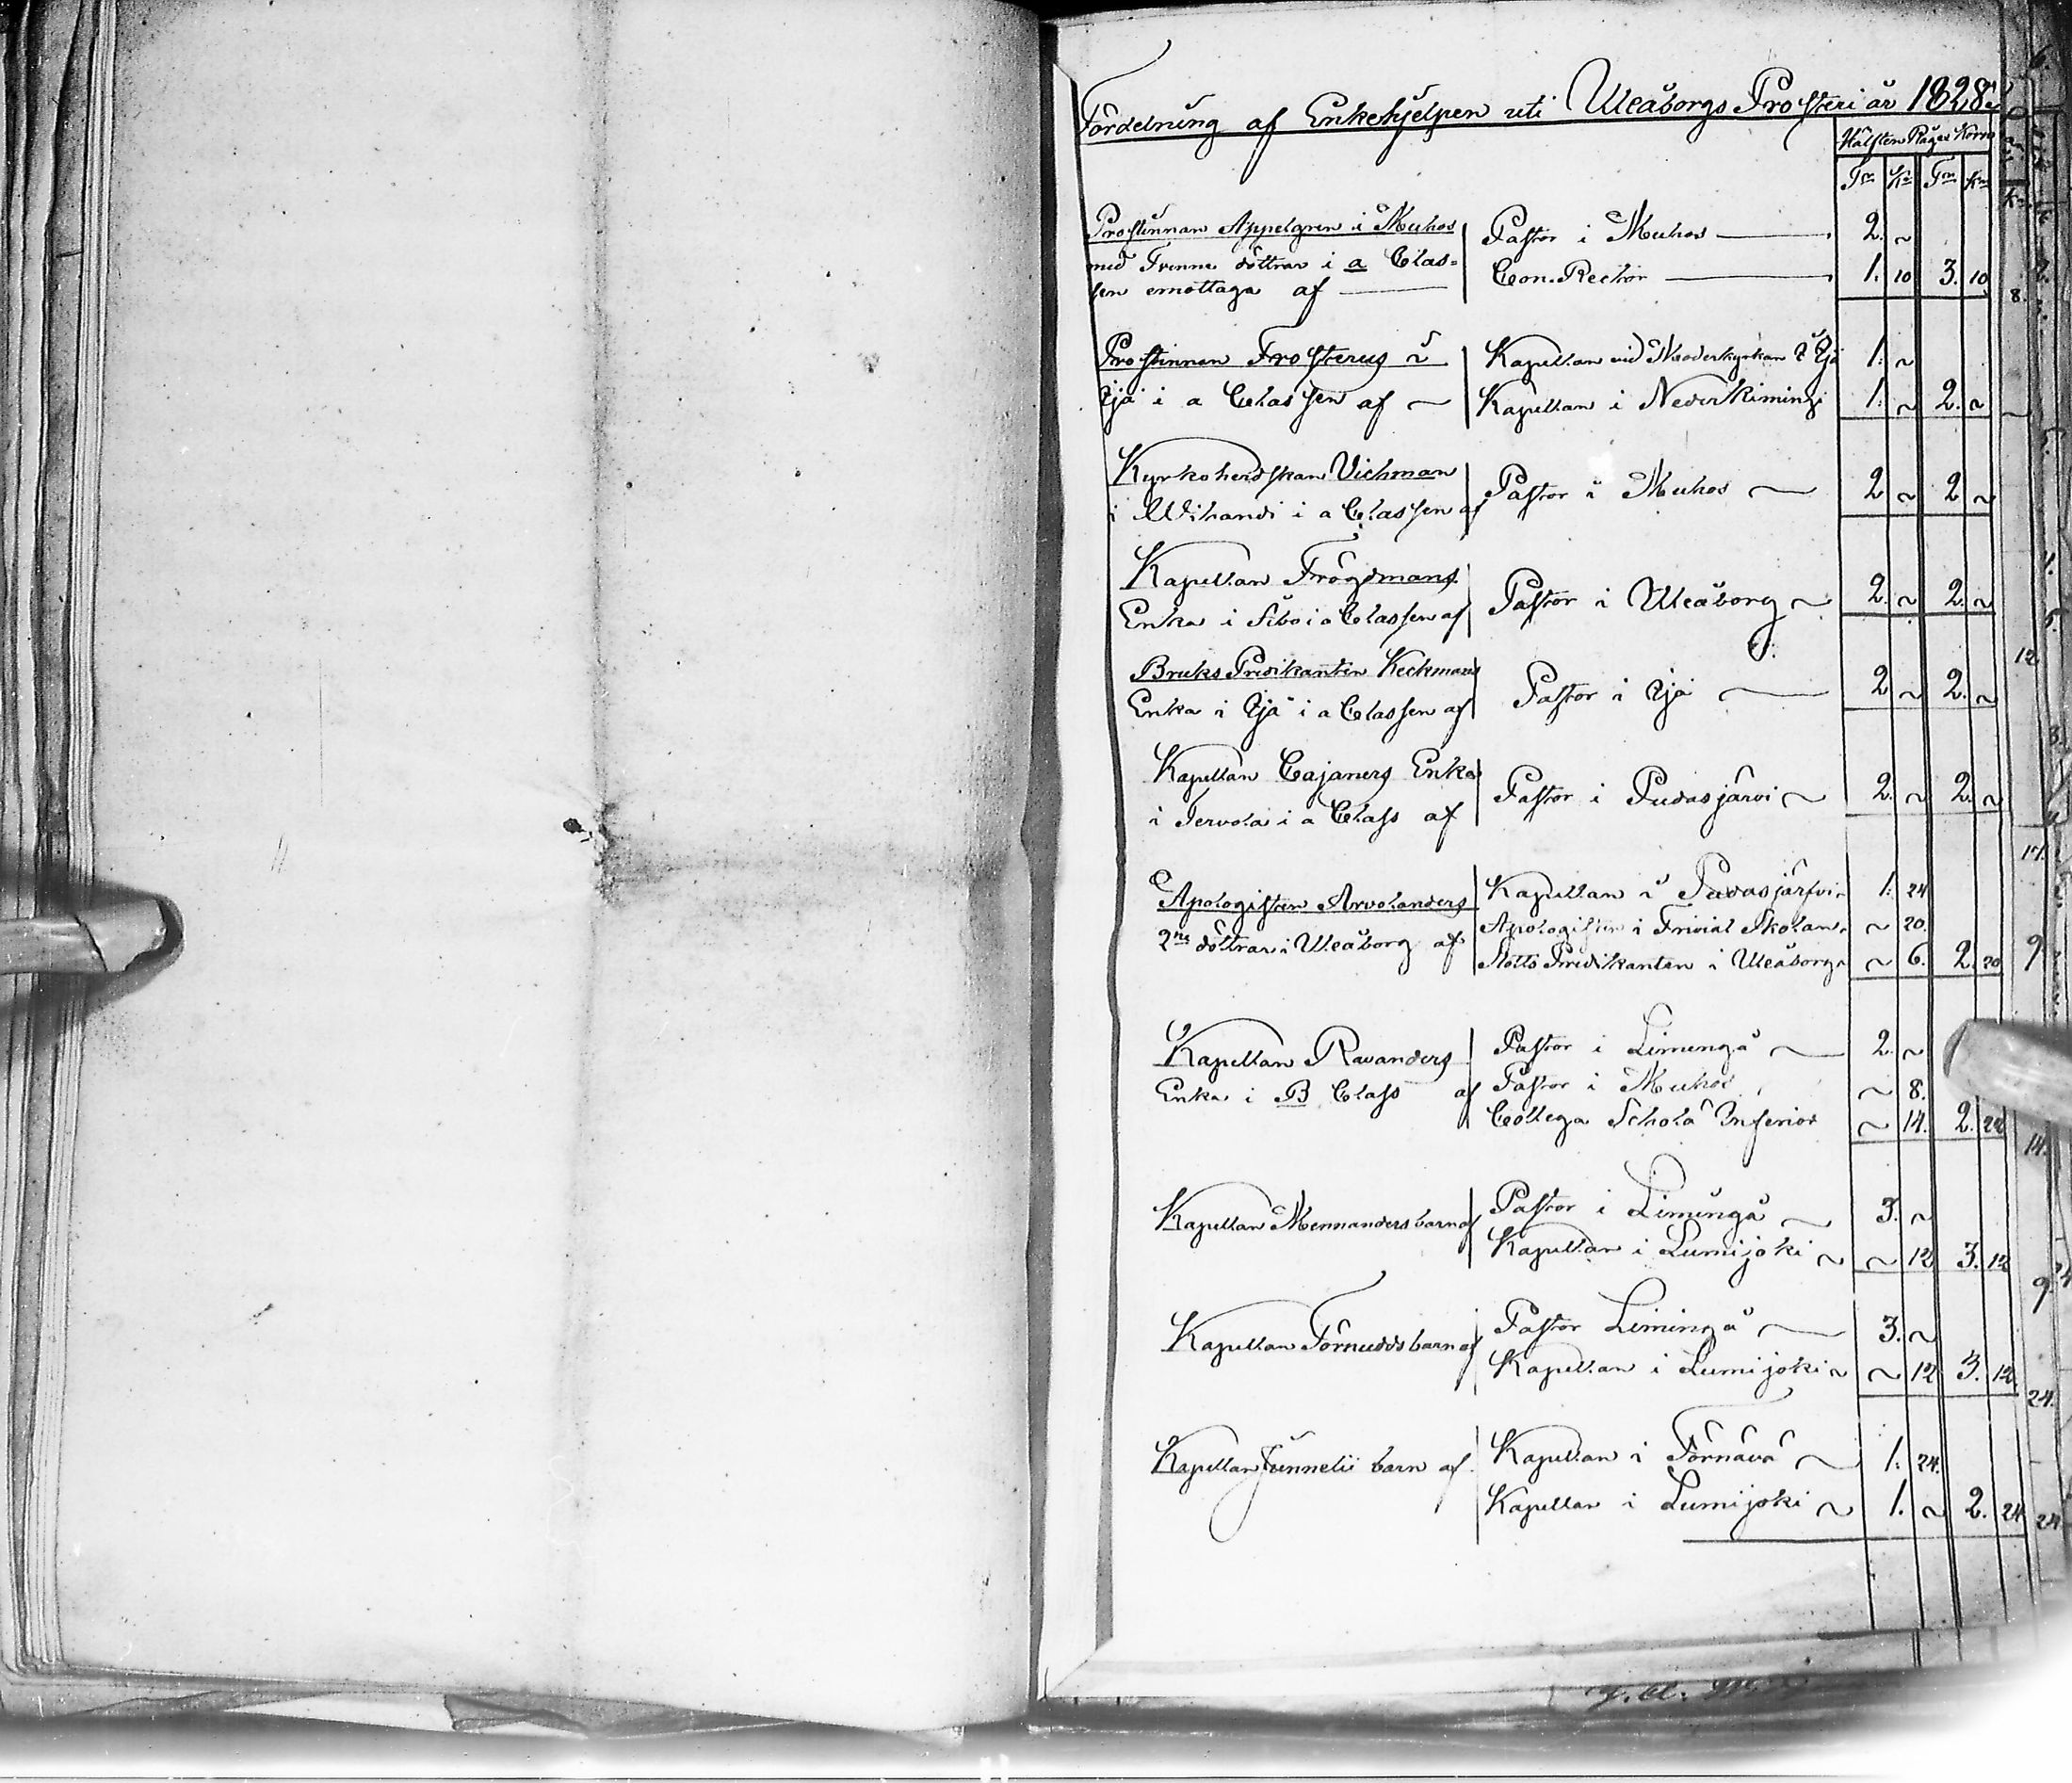 Fördelning af Enkehjelpen uti Uleåborgs Prosteri år 1828
Hälften Råg ex Korn
Tnr Kr Tnr Kr
Prostinnan Appelgren i Muhos
med Trenne döttrar i a Clas-
sen emottaga af
Pastor i Muhos 2. ~
Con. Rector 1. 10 3. 10
Prostinnan Frosterus i
Ijå i a Classen af ~
Kapellan vid Moderkyrkan i Ijå 1. ~
Kapellan i Nederkimingi 1. ~ 2. ~
Kyrkoherdskan Vichman
i Wihandi i a Classen af
Pastor i Muhos 2 ~ 2 ~
Kapellan Frögdmans
Enka i Sibo i a Classen af
Pastor i Uleåborg ~ 2. ~ 2. ~
Bruks Predikanten Keckmans
Enka i Ijå i a Classen af
Pastor i Ijå 2 ~ 2. ~
Kapellan Cajaners Enka
i Tervola i a Class af
Pastor i Pudasjärvi ~ 2. ~ 2. ~
Apologisten Arvolanders
2ne döttrar i Uleåborg af
Kapellan i Pudasjärfvi 1. 24
Apologisten i Trivial Skolan ~ 20.
Slotts Predikanten i Uleåborg ~ 6. 2. 20
Kapellan Ravanders
Enka i B Class af
Pastor i Limingå 2. ~
Pastor i Muhos ~ 8.
Collega Schola Inferior ~ 14. 2. 22
Kapellan Mennanders barn af
Pastor i Limingå 3. ~
Kapellan i Lumijoki ~ ~ 12 3. 12
Kapellan Törnudds barn af
Pastor Limingå 3. ~
Kapellan i Lumijoki ~ ~ 12 3. 12.
Kapellan Junnelii barn af
Kapellan i Törnävä ~ 1. 24.
Kapellan i Lumijoki ~ 1. ~ 2. 24